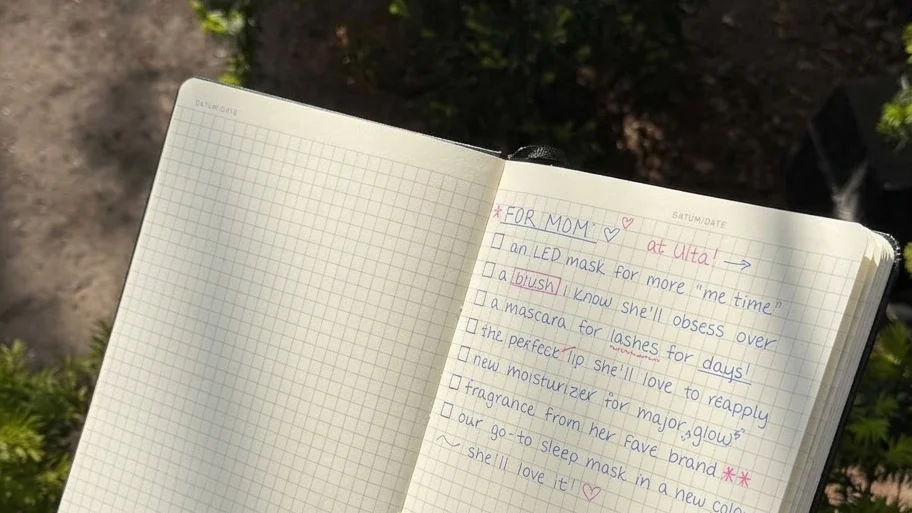 DATUM/DATE
DATUM/DATE
*FOR MOM: ♡ ♡ at Ulta! →
an LED mask for more "me time"
a blush i know she'll obsess over
a mascara for lashes for days!
the perfect lip she'll love to reapply
new moisturizer for major glow
fragrance from her fave brand **
our go-to sleep mask in a new
~ she'll love it! ♡